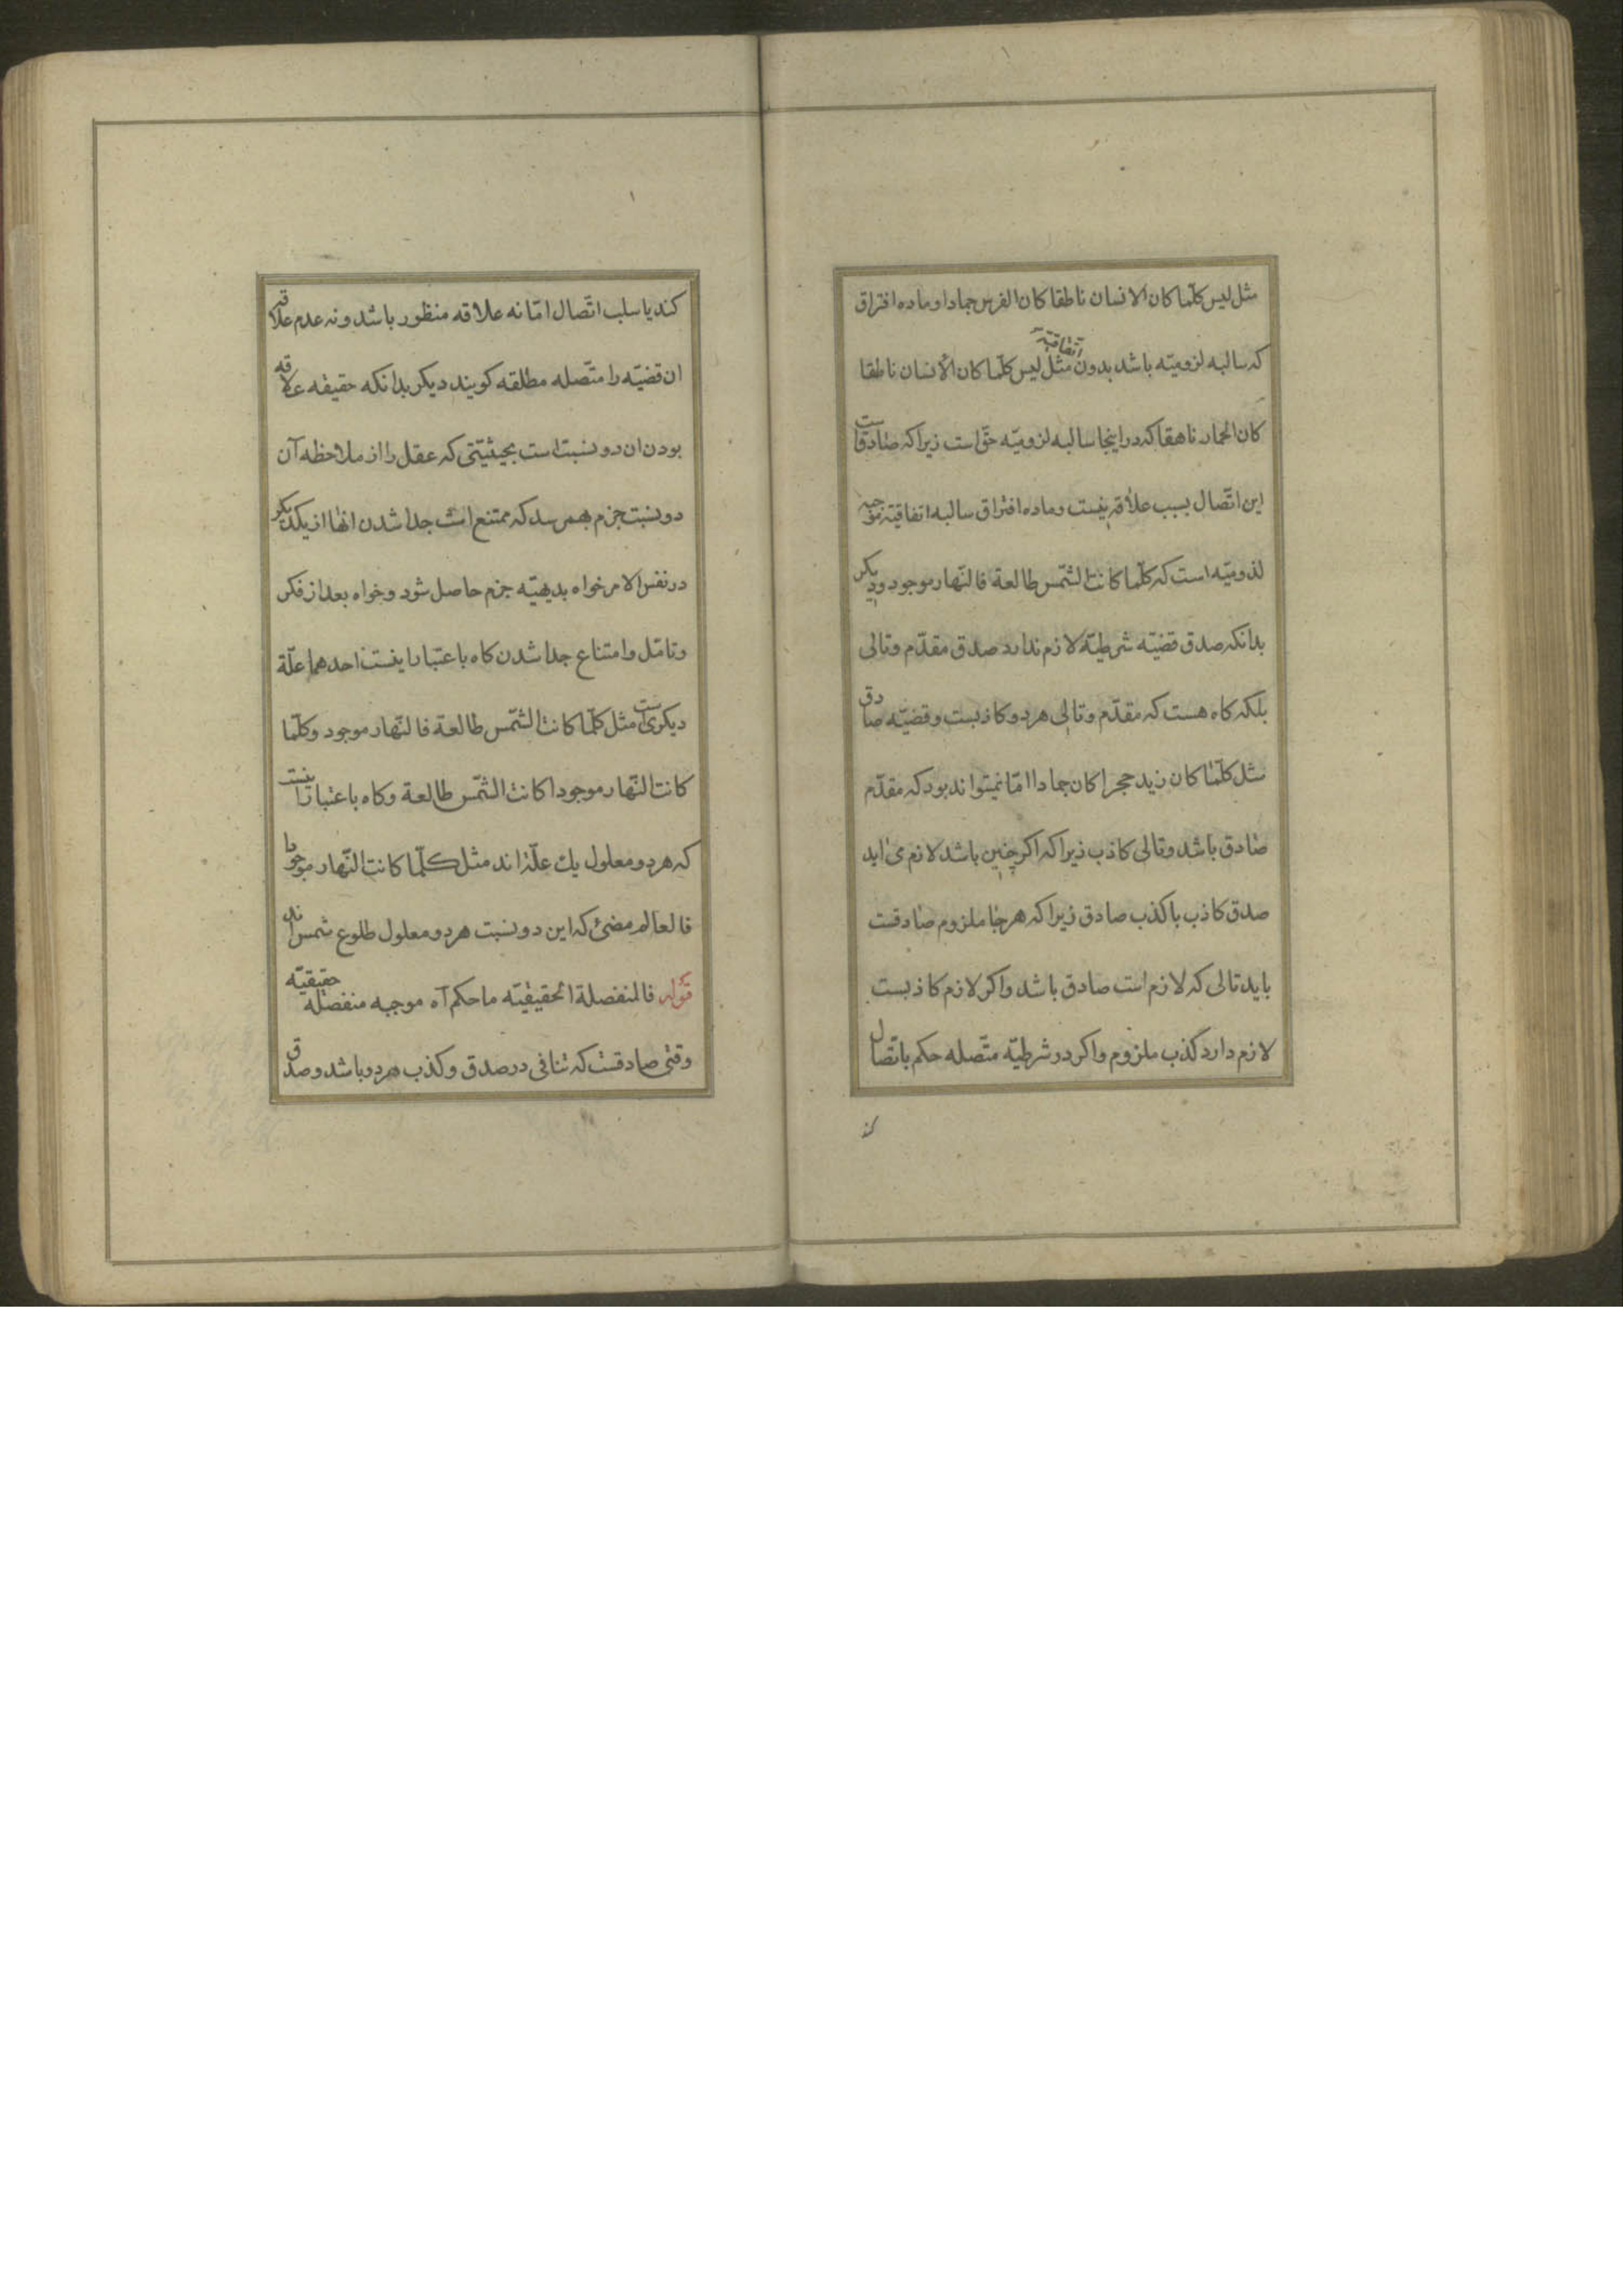 مثل لیس کلّما کان الانسان ناطقا کان الفرس جمادا و ماده افتراق
که سالبه لزومیّه باشد بدون اتفاقیّه مثل لیس کلّما کان الأنسان ناطقا
کان الحمار ناهقا که در اینجا سالبه لزومیّه حقّ است زیرا که صادقست
این اتّصال بسبب علاقه نیست و ماده افتراق سالبه اتفاقیّه موجبه
لذومیّه است که کلّما کانت الشّمس طالعة فالنّهار موجود و دیکر
بدانکه صدق قضیّه شرطیّه لازم ندارد صدق مقدّم و تالی
بلکه کاه هست که مقدّم و تالی هر دو کاذبست و قضیّه صادق
مثل کلّما کان زید حجرا کان جمادا امّا نمیتواند بود که مقدّم
صادق باشد و تالی کاذب زیرا که اکر چنین باشد لازم می اید
صدق کاذب با کذب صادق زیرا که هر جا ملزوم صادقست
باید تالی که لازم است صادق باشد و اکر لازم کاذبست
لازم دارد کذب ملزوم و اکر در شرطیّه متّصله حکم باتّصال
کند
کند یا سلب اتّصال امّا نه علاقه منظور باشد و نه عدم علاقه
ان قضیّه را متّصله مطلقه کویند دیکر بدانکه حقیقه علاقه
بودن ان دو نسبت است بحیثیّتی که عقل را از ملاحظه آن
دو نسبت جزم بهم رسد که ممتنع است جدا شدن انها از یکدیکر
در نفس الامر خواه بدیهیّه جزم حاصل شود و خواه بعد از فکر
و تامّل و امتناع جدا شدن کاه باعتبار اینست احدهما علّة
دیکری است مثل کلّما کانت الشّمس طالعة فالنّهار موجود و کلّما
کانت النّهار موجودا کانت الشّمس طالعة و کاه باعتبار اینست
که هر دو معلول یك علّة اند مثل کلّما کانت النّهار موجودا
فالعالم مضئ که این دو نسبت هر دو معلول طلوع شمس اند
قوله فالمنفصلة الحقیقیّه ما حکم آه موجبه منفصله حقیقیّه
وقتی صادقست که تنافی در صدق و کذب هر دو باشد و صدق